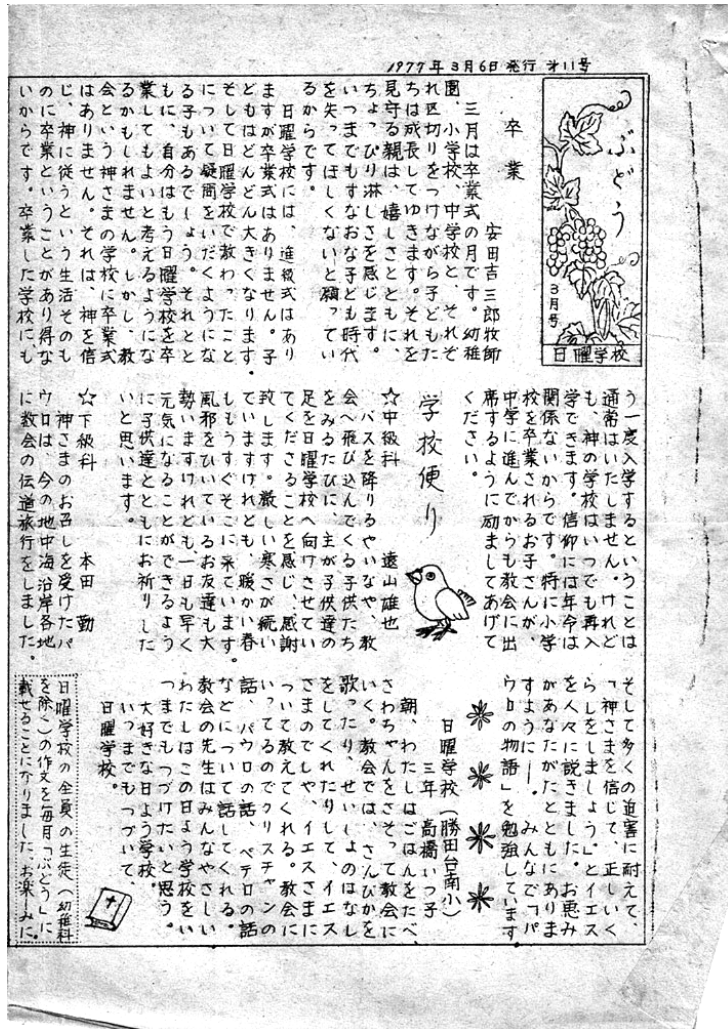 1977年3月6日発行 オ11号
ぶどう
3月号
日曜学校
卒業
安田吉三郎牧師
三月は卒業式の月です。幼稚
園、小学校、中学校と、それぞ
れ区切りをつけながら子どもた
ちは成長してゆきます。それを
見守る親は、嬉しさとともに、
ちょっぴり淋しさを感じます。
いつまでもすなおな子ども時代
を失ってほしくないと願ってい
るからです。
日曜学校には、進級式はあり
ますが卒業式はありません。子
どもはどんどん大きくなります。
そして日曜学校で教わったこと
について疑問をいだくようにな
る子もあるでしょう。それとと
もに、自分はもう日曜学校を卒
業してもよいと考えるようにな
るかもしれません。しかし、教
会という神さまの学校に卒業式
はありません。それは、神を信
じ、神に従うという生活そのも
のに卒業ということがあり得な
いからです。卒業した学校にも
う一度入学するということは
通常はいたしません。けれど
も、神の学校はいつでも再入
学できます。信仰には年令は
関係ないからです。特に小学
校を卒業されるお子さんが、
中学に進んでからも教会に出
席するように励ましてあげて
ください。
学校便り
☆中級科 遠山雄也
バスを降りるやいなや、教
会へ飛び込んでくる子供たち
をみるたびに、主が子供達の
足を日曜学校へ向けさせてい
てくださることを感じ、感謝
致します。厳しい寒さが続い
ていますけれども、暖かい春
ももうすぐそこに来ています。
風邪をひいているお友達も大
勢いますけれども一日も早く
元気になることができるよう
に子供達とともにお祈りした
いと思います。
☆下級科 本田 勤
神さまのお召しを受けたパ
ウロは、今の地中海沿岸各地
に教会の伝道旅行をしました。
そして多くの迫害に耐えて、
「神さまを信じて、正しいく
らしをしましょう」とイエス
を人々に説きました。お恵み
があなたがたとともにありま
すように――。みんなで「パ
ウロの物語」を勉強しています
日曜学校(勝田台南小)
三年 高橋いつ子
朝、わたしはごはんをたべ、
さわちゃんをさそって教会に
いく。教会では、さんびかを
歌ったり、せいしょのはなし
をしてくれたりして、イエス
さまのでしや、イエスさまに
ついて教えてくれる。教会に
いってるのでクリスチャンの
話、パウロの話、ペテロの話
などについて話してくれる。
教会の先生はみんなやさしい
わたしはこの日よう学校をい
つまでもつづけたいと思う。
大好きな日よう学校。
いつまでもつづいて、
日曜学校。
日曜学校の全員の生徒(幼稚科
を除く)の作文を毎月「ぶどう」に
載せることになりました。お楽しみに。